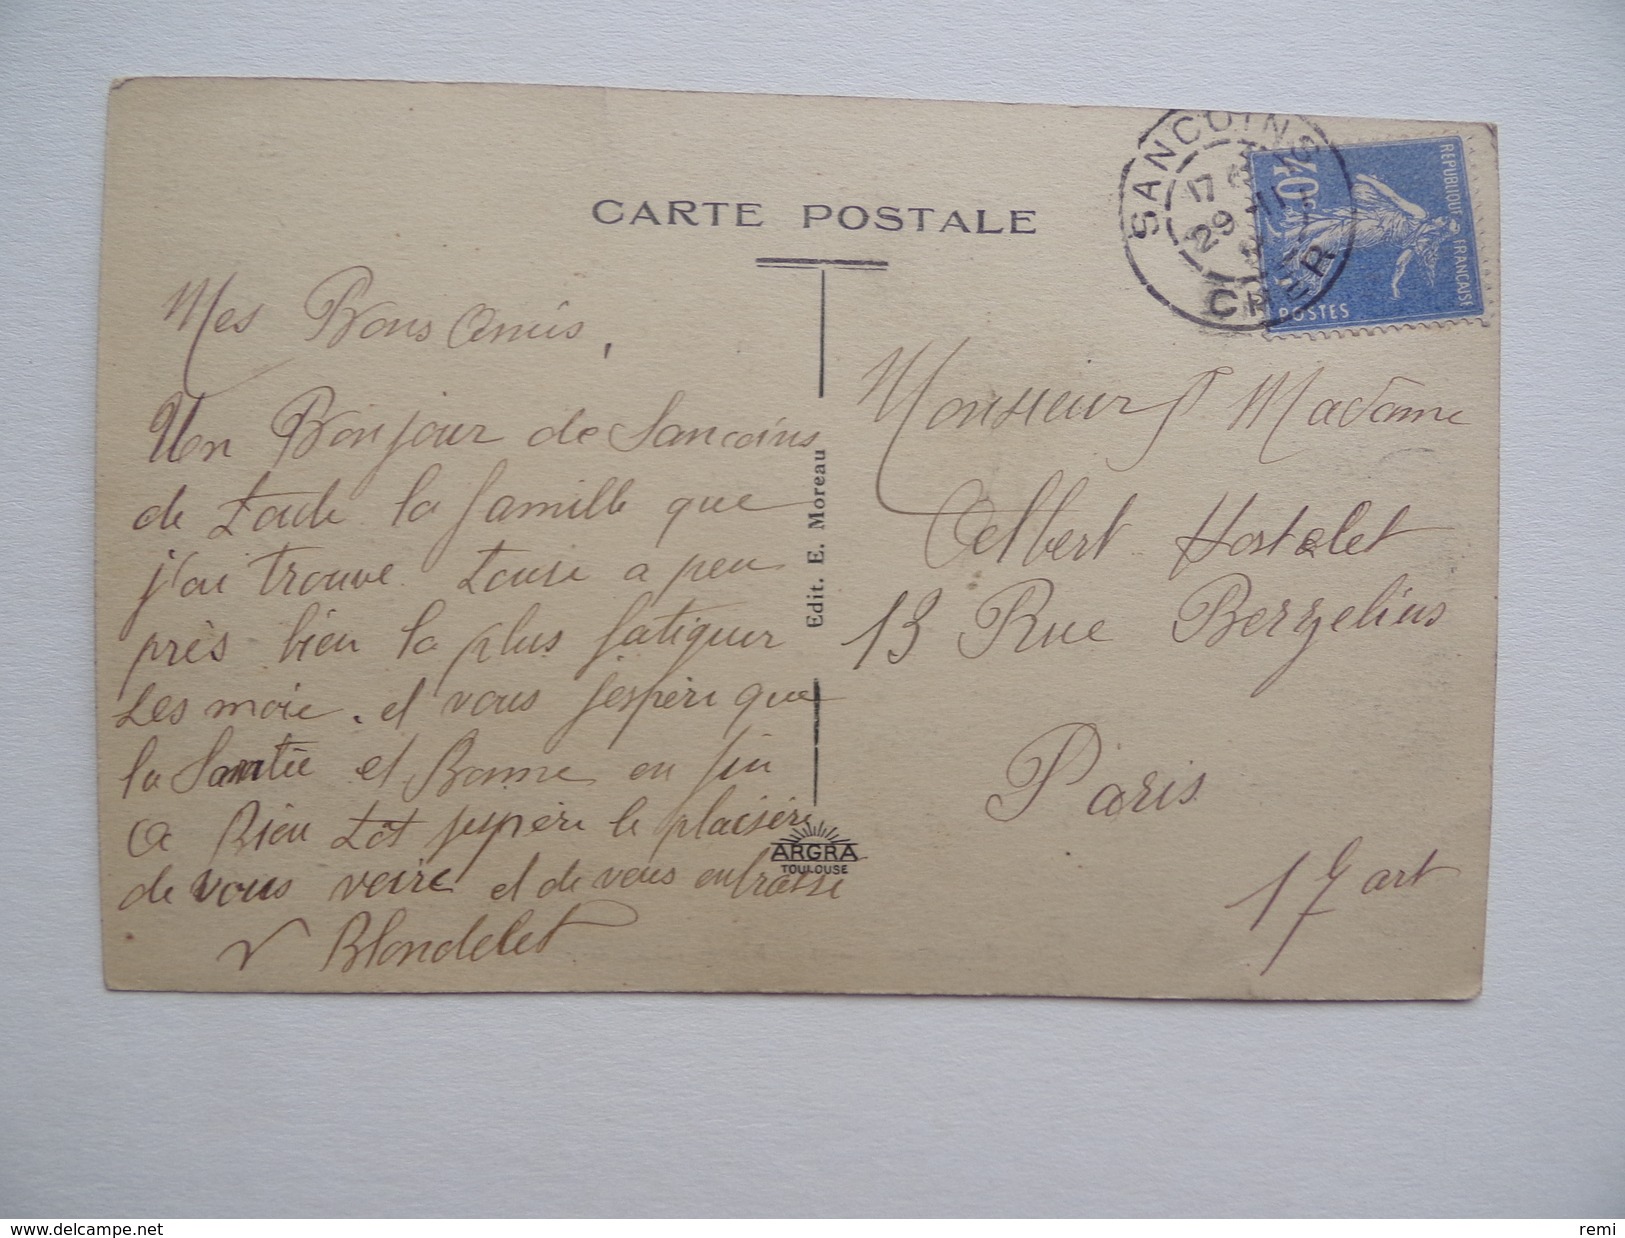 CARTE POSTALE
SANCOINS
17
29 -11
CHER
40c
REPUBLIQUE FRANCAISE
POSTES
Mes Bons Amis,
Un Bonjour de Sancoins
de toute la famille que
j'ai trouve Tousi a peu
près bien la plus fatiguer
ses moie. et vous jespère que
la Santée et Bonne en fin
a Bien tôt jespère le plaisère
de vous voire et de vous enbrasse
V Blondelet
Edit. E. Moreau
ARGRA
TOULOUSE
Monsieur Madame
Albert Hostelet
13 Rue Berzelius
Paris
17 art
www.delcampe.net
remi